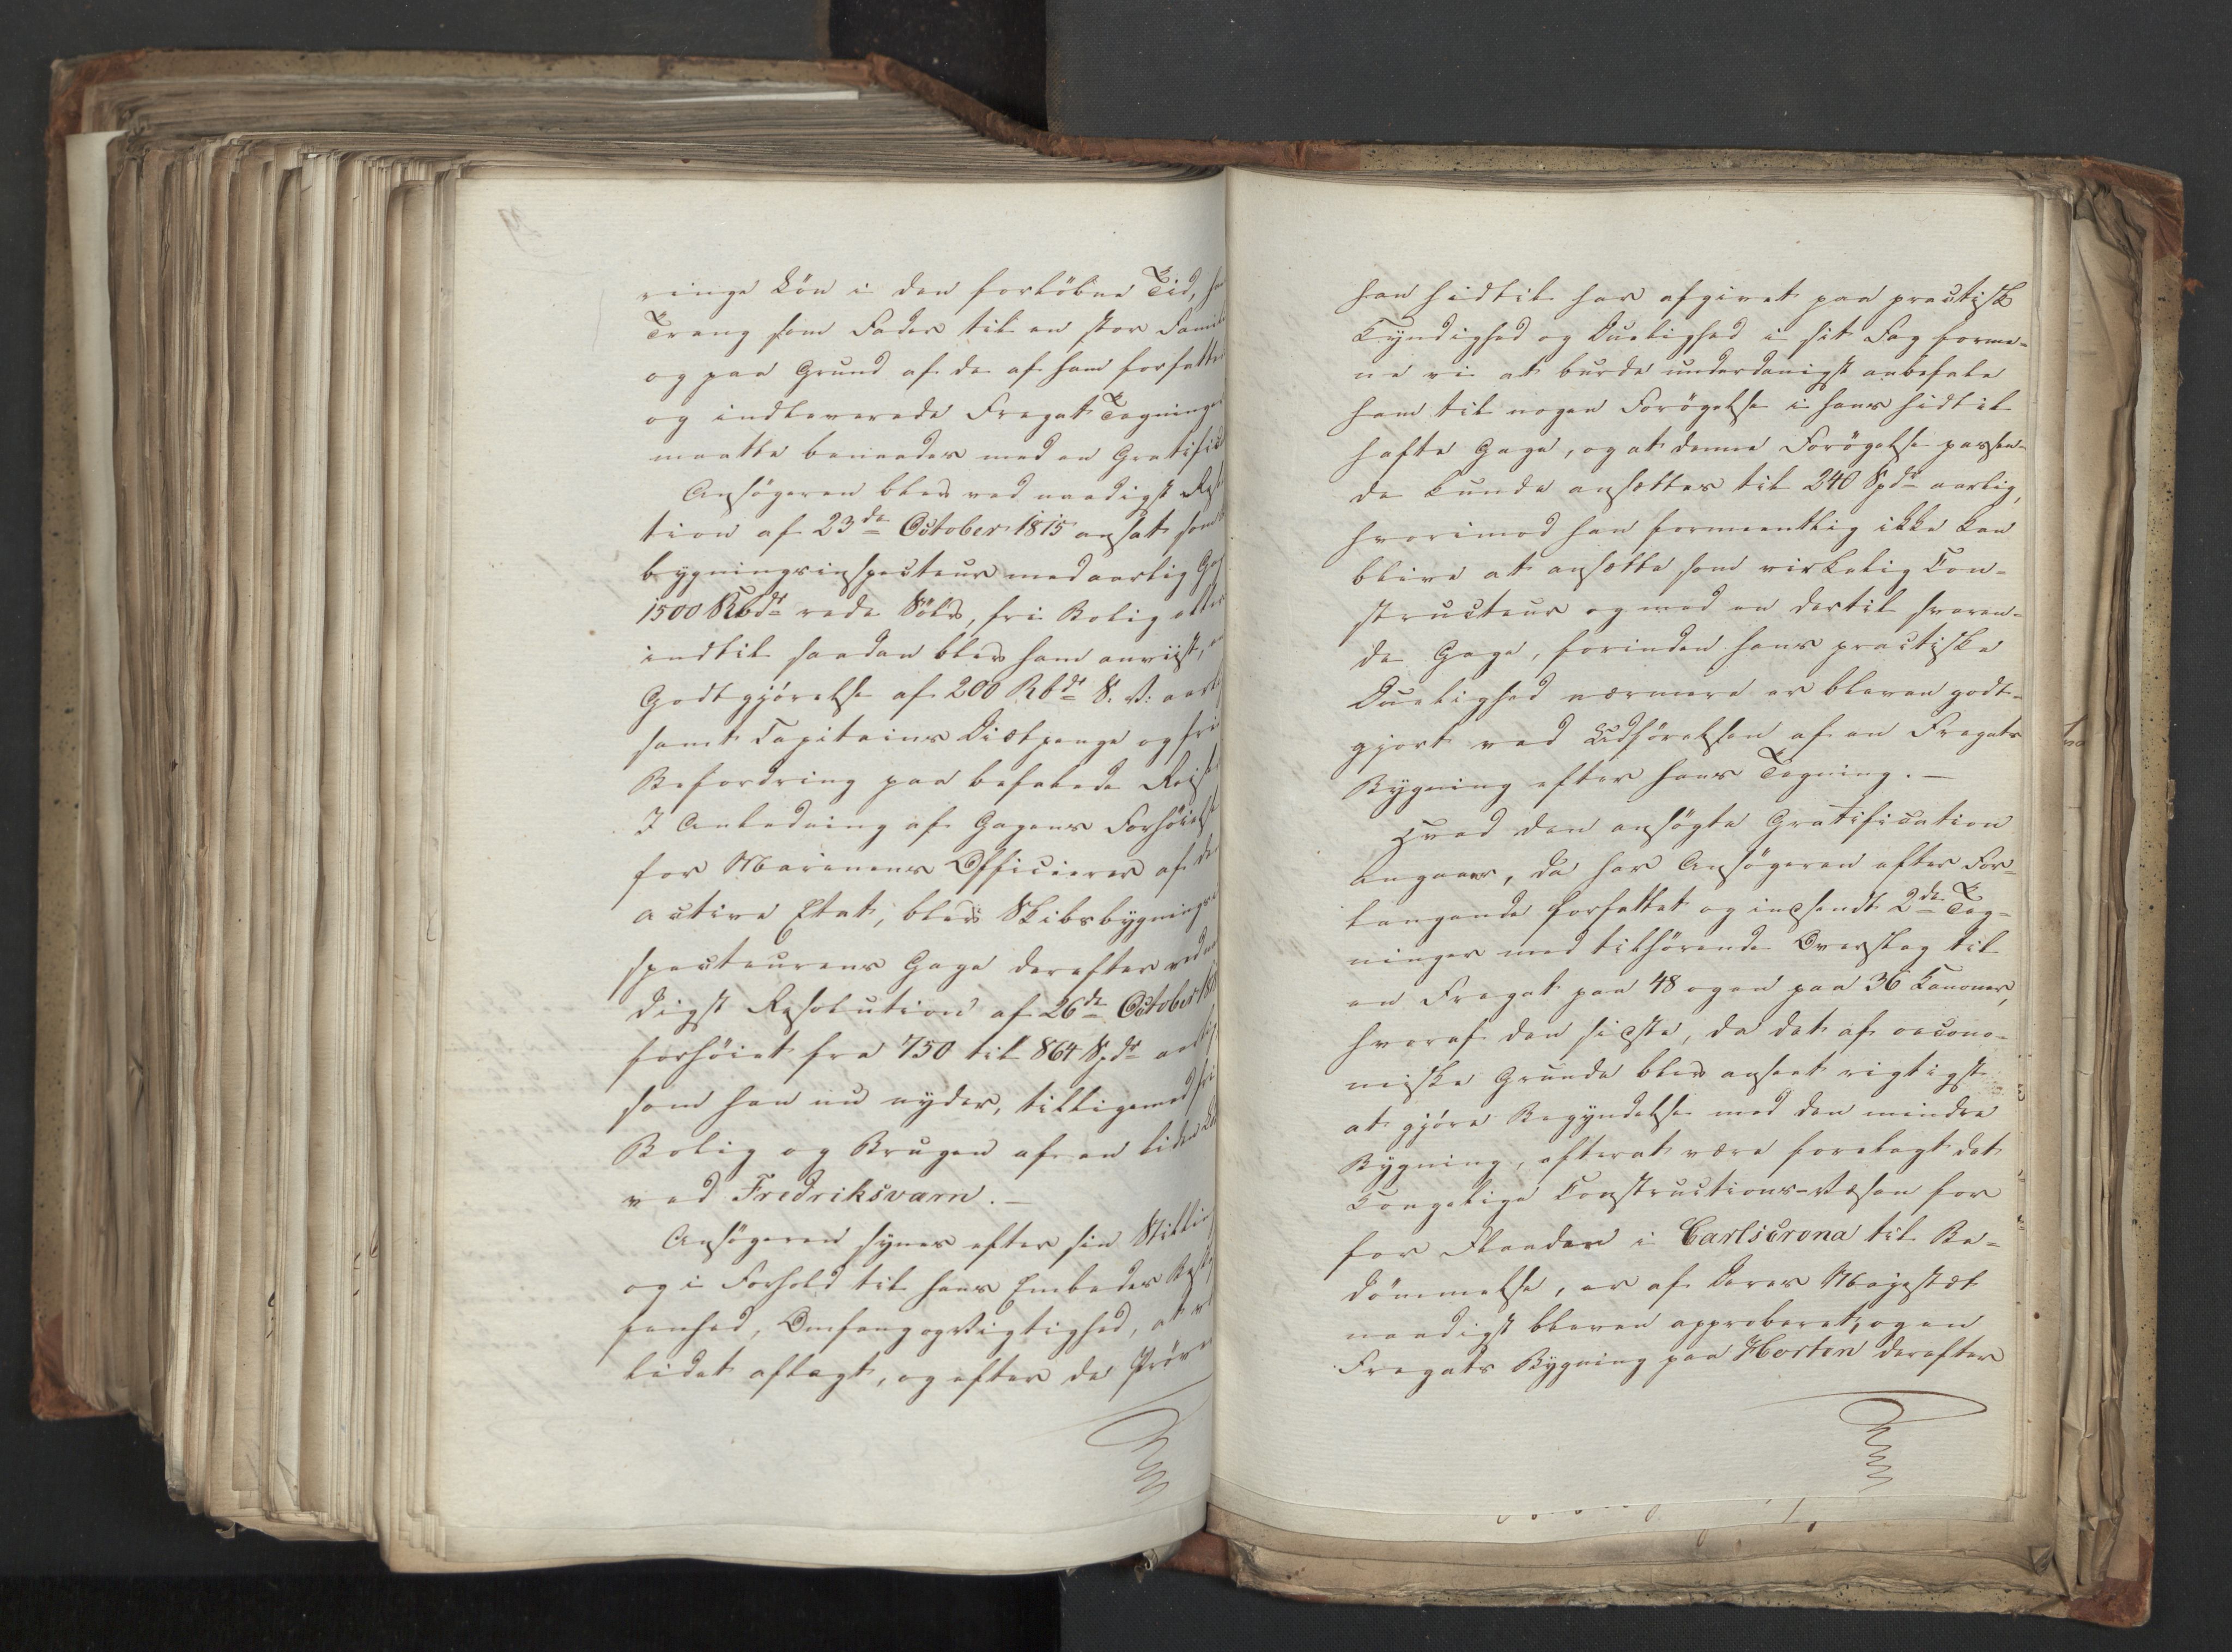 ringe Løn i den forløbne Tid,
Trang som Fader til en stor Famil
og paa Grund af de af ham forfatte
og indleverede Fregat Tegninger
maatte benaades med en Gratific
Ansøgeren blev ved naadigst Reso
tion af 23de October 1815 ansat som
bygningsinspecteur med aarlig Ga
1500 Rbdr rede Sølv, fri Bolig eller
indtil saadan blev ham anviist, en
Godtgjørelse af 200 Rbdr S. V. aarl
samt Capitains Diætpenge og fri
Befordring paa befalede Reiser
I Anledning af Gagens Forhøielse
for Marinens Officierer af de
active Etat, blev Skibsbygnings
specteurens Gage derefter ved
digst Resolution af 26de October
forhøiet fra 750 til 864 Spdr aarlig
som han nu nyder, tilligemed fri
Bolig og Brugen af en liden
ved Fredriksværn. —
Ansøgeren synes efter sin Stilling
og i Forhold til hans Embedes Besk
fenhed, Omfang og Vigtighed, at
lidet aflagt, og efter de Prøver
han hidtil har afgivet paa practisk
Kyndighed og Duelighed i sit Fag forme-
ne vi at burde underdanigst anbefale
ham til nogen Forøgelse i hans hidtil
hafte Gage, og at denne Forøgelse passen-
de kunde ansættes til 240 Spdr aarlig,
hvorimod han formeentlig ikke kan
blive at ansætte som virkelig Con-
structeur og med en dertil svaren-
de Gage, forinden hans practiske
Duelighed nærmere er bleven godt-
gjort ved Udførelsen af en Fregats
Bygning efter hans Tegning. —
Hvad den ansøgte Gratification
angaaer, da har Ansøgeren efter For-
langende forfattet og indsendt 2de Teg-
ninger med tilhørende Overslag til
en Fregat paa 48 og en paa 36 Kanoner,
hvoraf den sidste, da det af oecono-
miske Grunde blev anseet rigtigst
at gjøre Begyndelse med den mindre
Bygning, efterat være forelagt det
Kongelige Constructions-Væsen for
for Flaaden i Carlscrona til Be-
dømmelse, er af Deres Majestæt
naadigst bleven approberet, og en
Fregats Bygning paa Horten derefter